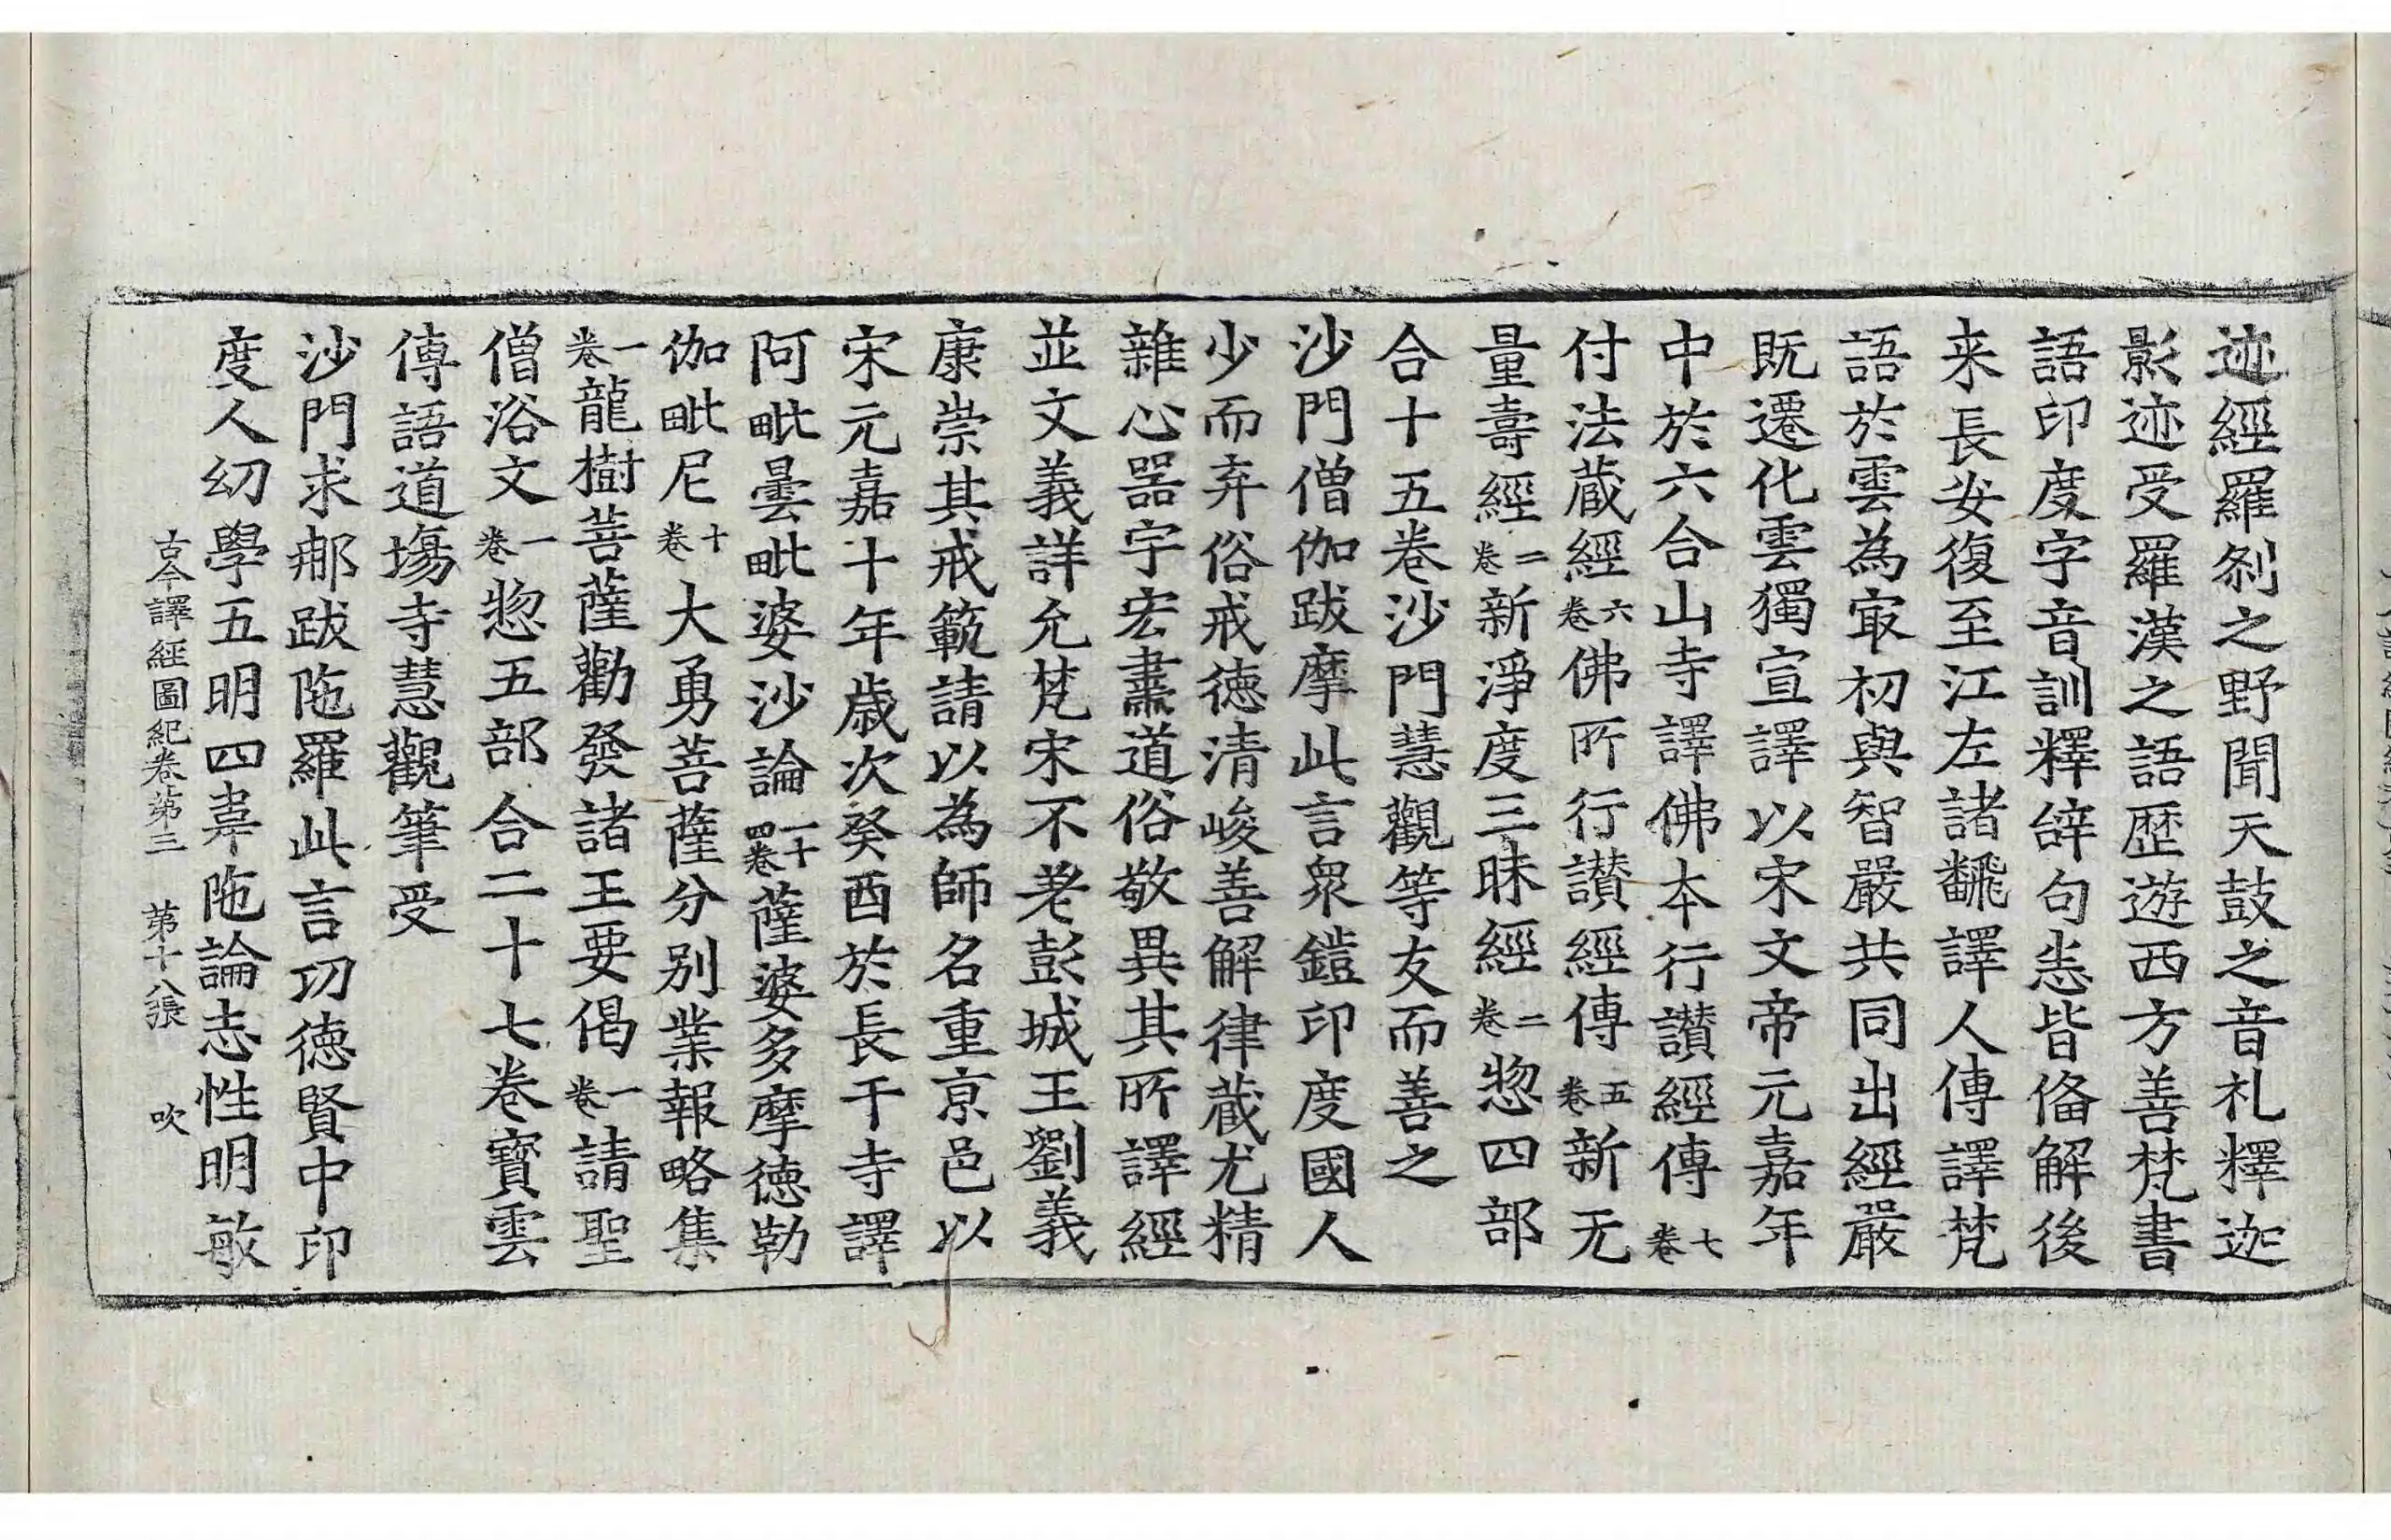 迹經羅刹之野聞天鼓之音礼釋迦
影迹受羅漢之語歷遊西方善梵書
語印度字音訓釋辞句恙皆俻解後
来長安復至江左諸飜譯人傳譯梵
語於雲為㝡初與智嚴共同出經嚴
既遷化雲獨宣譯以宋文帝元嘉年
中於六合山寺譯佛本行讃經傳七卷
付法蔵經六卷佛所行讃經傳五卷新无
量壽經二卷新淨度三昧經二卷惣四部
合十五卷沙門慧觀等友而善之
沙門僧伽跋摩此言衆鎧印度國人
少而弃俗戒德清峻善解律蔵尤精
雜心器宇宏肅道俗敬異其所譯經
並文義詳允梵宋不老彭城王劉義
康崇其戒範請以為師名重京邑以
宋元嘉十年歳次癸酉於長干寺譯
阿毗曇毗婆沙論一十四卷薩婆多摩德勒
伽毗尼十卷大勇菩薩分別業報略集
一卷龍樹菩薩勸發諸王要偈一卷請聖
僧浴文一卷惣五部合二十七卷寶雲
傳語道場寺慧觀筆受
沙門求那跋陁羅此言功德賢中印
度人幼學五明四韋陁論志性明敏
古今譯經圖紀卷第三 第十八張 吹